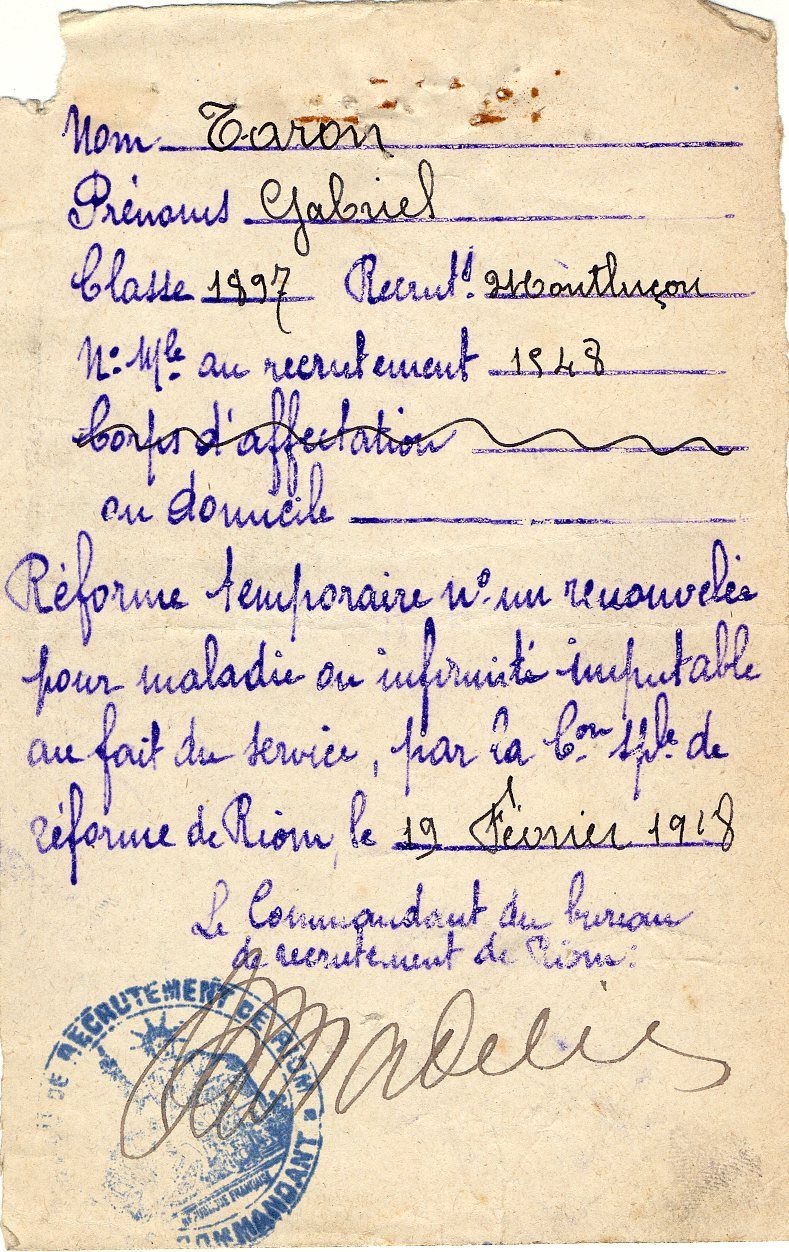 Nom Taron
Prénoms Gabriel
Classe 1897 Recrut.t Montluçon
N° Mle au recrutement 1548
Corps d'affectation
ou domicile
Réforme temporaire n° un renouvelée
pour maladie ou infirmité imputable
au fait du service, par la Con Sple de
réforme de Riom, le 19 Février 1918
Le Commandant du bureau
de recrutement de Riom:
DE RECRUTEMENT DE RIOM
RÉPUBLIQUE FRANÇAISE
COMMANDANT